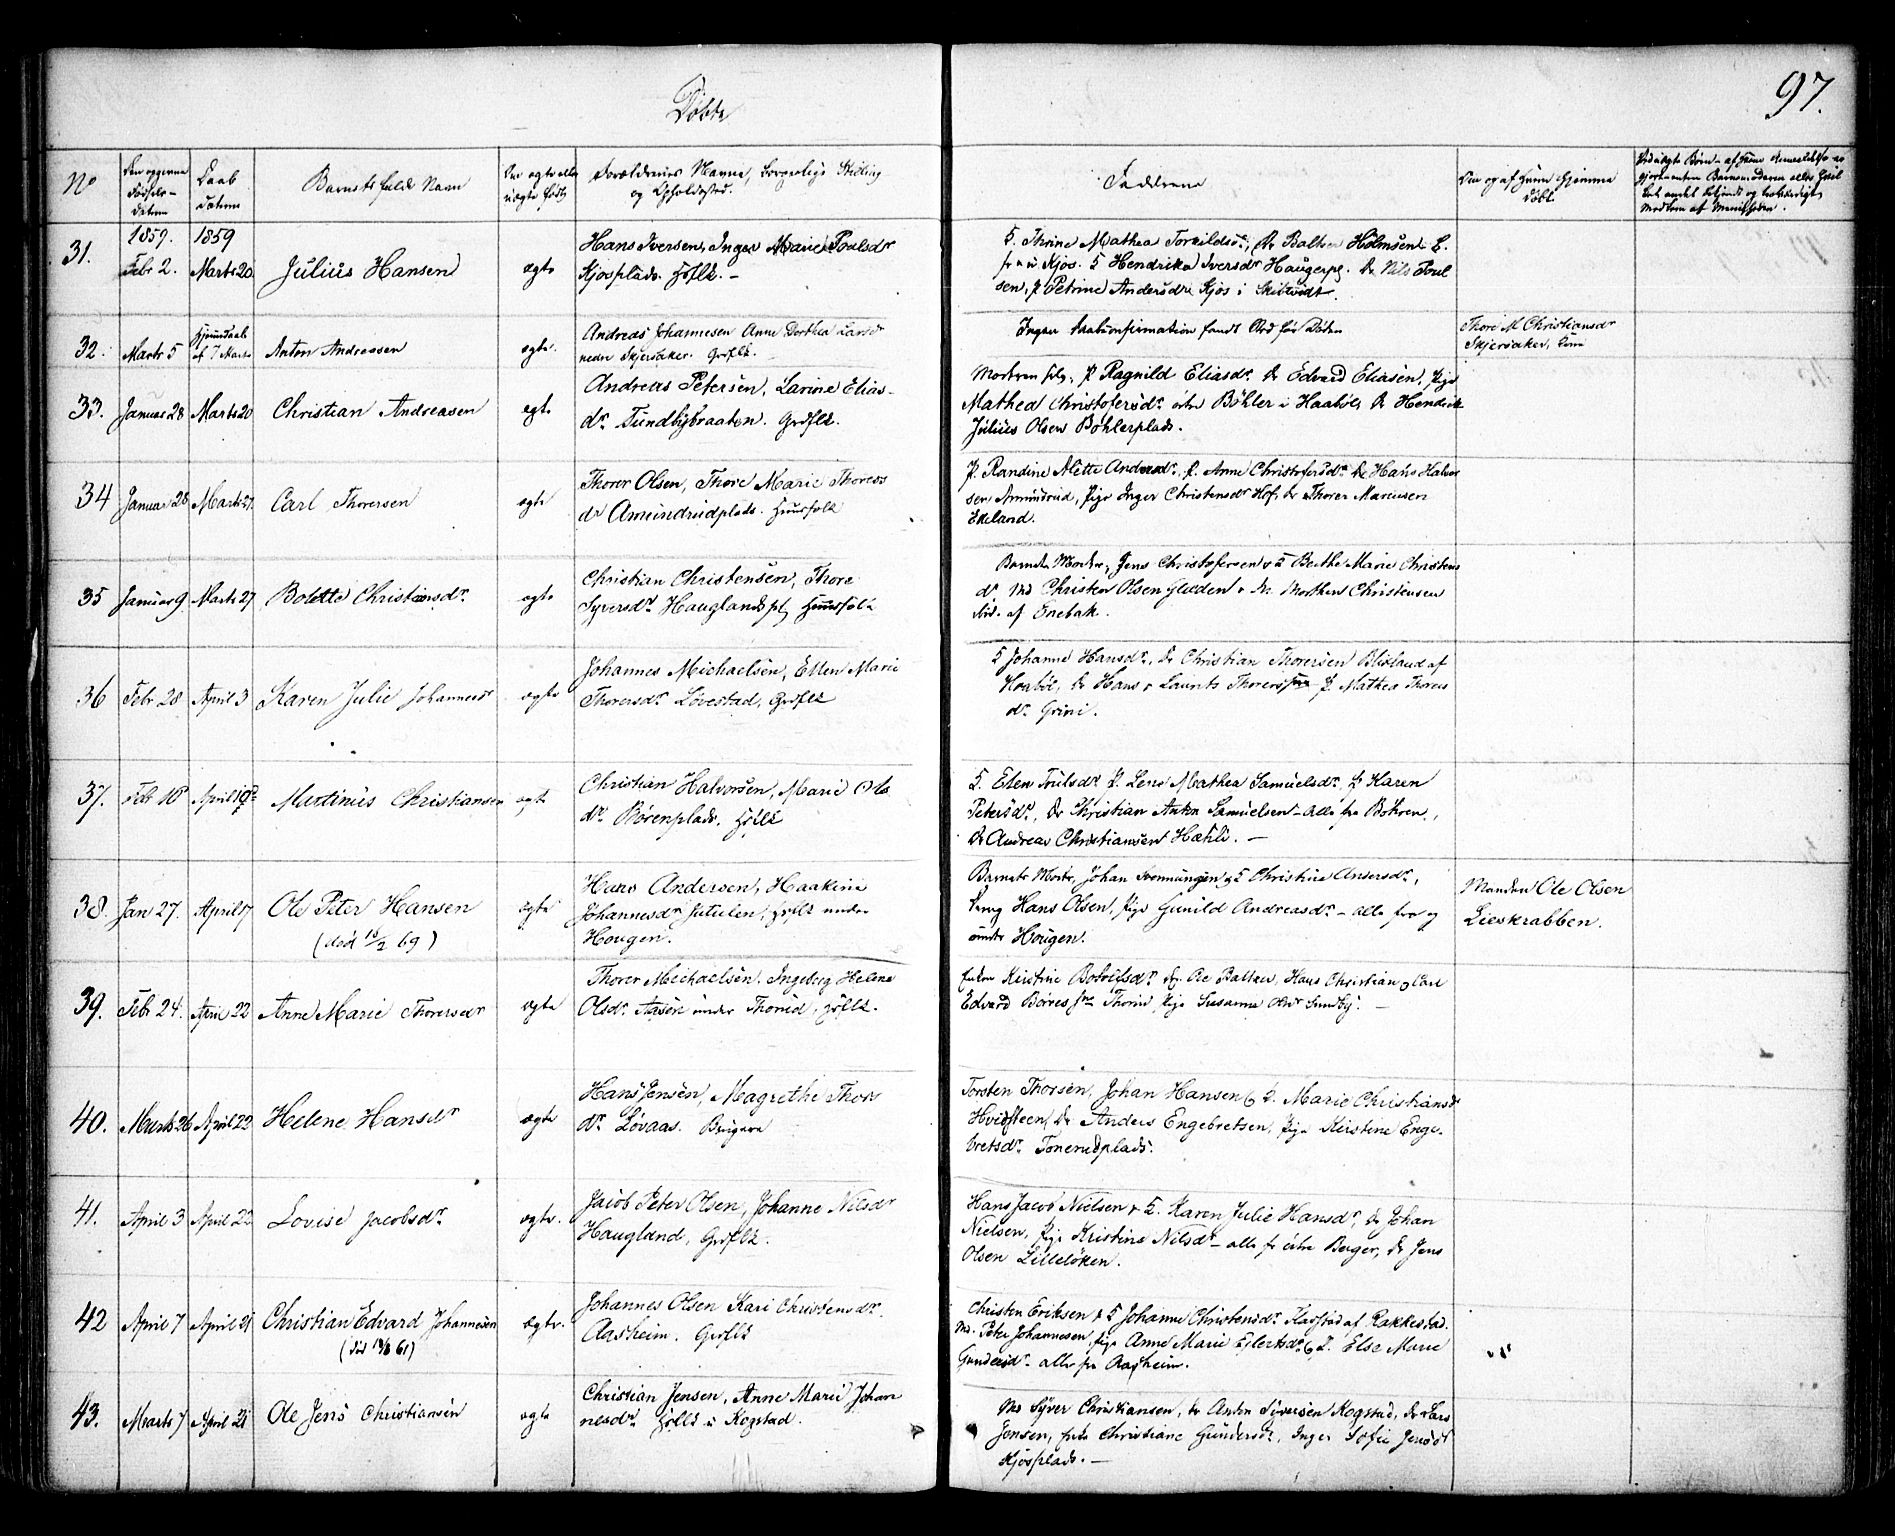 Døbte
97.
No
Barnets fulde Navn
Forældrenes Navne, borgerlige Stilling
og Opholdssted.
Faddrene
Døbt.
31.
1859.
Febr 2.
1859
Marts 20
Julius Hansen
ægte
Hans Iversen, Inger Marie Poulsdr
Kjosplads. Hsflk. –
F. Thrine Mathea Torkildsdr, Dr Baltzer Holmsen
Kjos. F Hendrika Iversdr Haugerpl. Dr Nils Poul
sen, P Petrine Andersdr Kjos i Skibtvedt.
32.
Marts 5
Hjemmedøbt
af 7 Marts
Anton Andreasen
ægte.
Andreas Johannesen Anne Dorthea Larsdr
nedre Skjersaker. Grdflk.
Ingen Daabconfirmation fandt Sted før Døden
Thore M Christiansdr
Skjersaker,
33.
Januar 28
Marts 20
Christian Andreasen
ægte
Andreas Petersen, Larine Elias-
dr Tundbybraaten. Grdflk.
Moderen selv, P Ragnild Eliasdr Dr Edvard Eliasen, Pige
Mathea Christofersdr østre Bøhler i Haabøl, Dr Hendrik
Julius Olsen Bøhlerplads.
34
Januar 28
Marts 27
Carl Thorersen
ægte
Thorer Olsen, Thore Marie Thorers
dr Amundrudplads. Huusfolk
P. Randine Alette Andersdr, P. Anne Christofersdr Dr Hans Halvor
sen Amundrud, Pige Inger Christensdr Hof, Dr Thorer Marensen
Ekeland.
35
Januar 9.
Marts 27
Bolette Christiansdr
ægte
Christian Christensen, Thore
Syversdr Hauglandspl, Huusfolk
Barnets Moder, Jens Christofersen & F Berthe Marie Christens
dr Md Christen Olsen Gladen & Dr Mathea Christensen
af Enebak.
36
Febr 28
April 3
Karen Julie Johannesdr
ægte
Johannes Michaelsen, Ellen Marie
Thorersdr Løvestad, Grdflk
F Johanne Hansdr, Dr Christian Thorersen Blixland af
Haabøl, Dr Hans & Laurits Thorers P. Mathea Thorers
dr Grini.
37.
Febr 18
April 10
Martinus Christiansen
ægte
Christian Halvorsen, Marie Ols
dr Børenplads. Hsflk
F. Elen Poulsdr P. Lene Mathea Samuelsdr, P Karen
Petersdr, Dr Christian Anton Samuelsen – alle fra Bøhren.,
Dr Andreas Christiansen Hæhli. –
38.
Jan 27.
April 17
Ole Peter Hansen
(død 15/2 69)
ægte
Hans Andersen, Haakine
Johannesdr Jutulen, Hsflk under
Hougen.
Barnets Moder, Johan Svennungen & F Christine Ansersdr,
Hans Olsen, Pige Gunild Andreasdr – alle fra og
under Hougen.
Manden Ole Olsen
Lieskrabben.
39.
Febr 24.
April 22
Anne Marie Thorersdr
ægte
Thorer Michaelsen, Ingeborg Helene
Olsdr Aasen under Thorud, Hsflk.
Enken Kirstine Bottolfsdr, Ole Baltzer, Hans Christian & Carl
Edvard Børres Thorud, Pige Susanne Olsdr Sundby. –
40.
Marts 26
April 22
Helene Hansdr
ægte
Hans Jensen, Magrethe Thor
dr Løvaas. Brugere
Torsten Thorsen, Johan Hansen & F. Marie Christiansdr
Hvidsteen, Dr Anders Engebretsen, Pige Kirstine Enge-
bretsdr Tonerudplads.
41.
April 3
April 22
Lovise Jacobsdr
ægte.
Jacob Peter Olsen, Johanne Nilsdr
Haugland, Grdflk.
Hans Jacob Nielsen & F. Karen Julie Hansdr, Dr Johan
Nielsen, Pige Kristine Nilsdr – alle fr østre Berger, Dr Jens
Olsen Lilleløken.
42
April 7
April 21
Christian Edvard Johannesen
(død 19/8 61)
ægte.
Johannes Olsen Kari Christensdr
Aasheim. Grdflk
Christen Eriksen, & F Johanne Christensdr af Rakkestad.
Md. Peter Johannesen, Pige Anne Marie Eilertsdr & P. Else Marie
Gundersdr alle fra Aasheim.
43.
Marts 7
April 21
Ole Jens Christiansen
ægte
Christian Jensen, Anne Marie Johan
nesdr Hsflk u Kogstad.
Md Syver Christiansen, Dr Anton Syversen Kogstad, Dr Lars
Jensen, Christiane Gundersdr, Inger Sofie Jensdr
Kjosplads. –